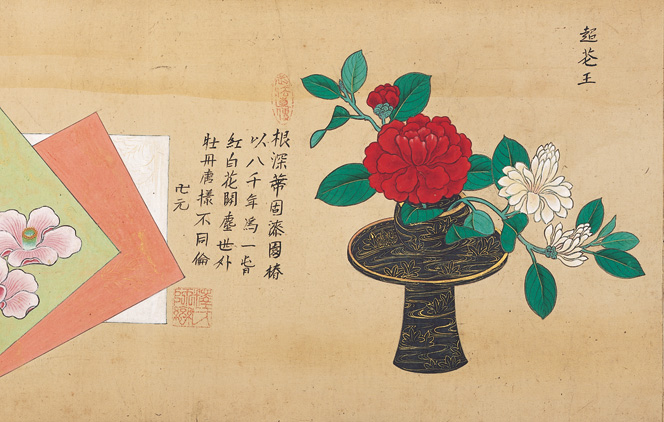 超芲王
根深蒂固漆園椿
以八千年為一旾
紅白花開塵世外
牡丹唐様不同倫